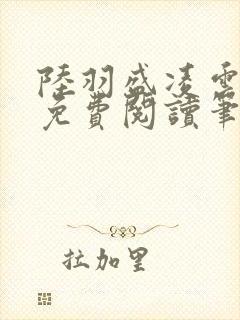 陸羽盛凌雲
免費閱讀筆
拉加里